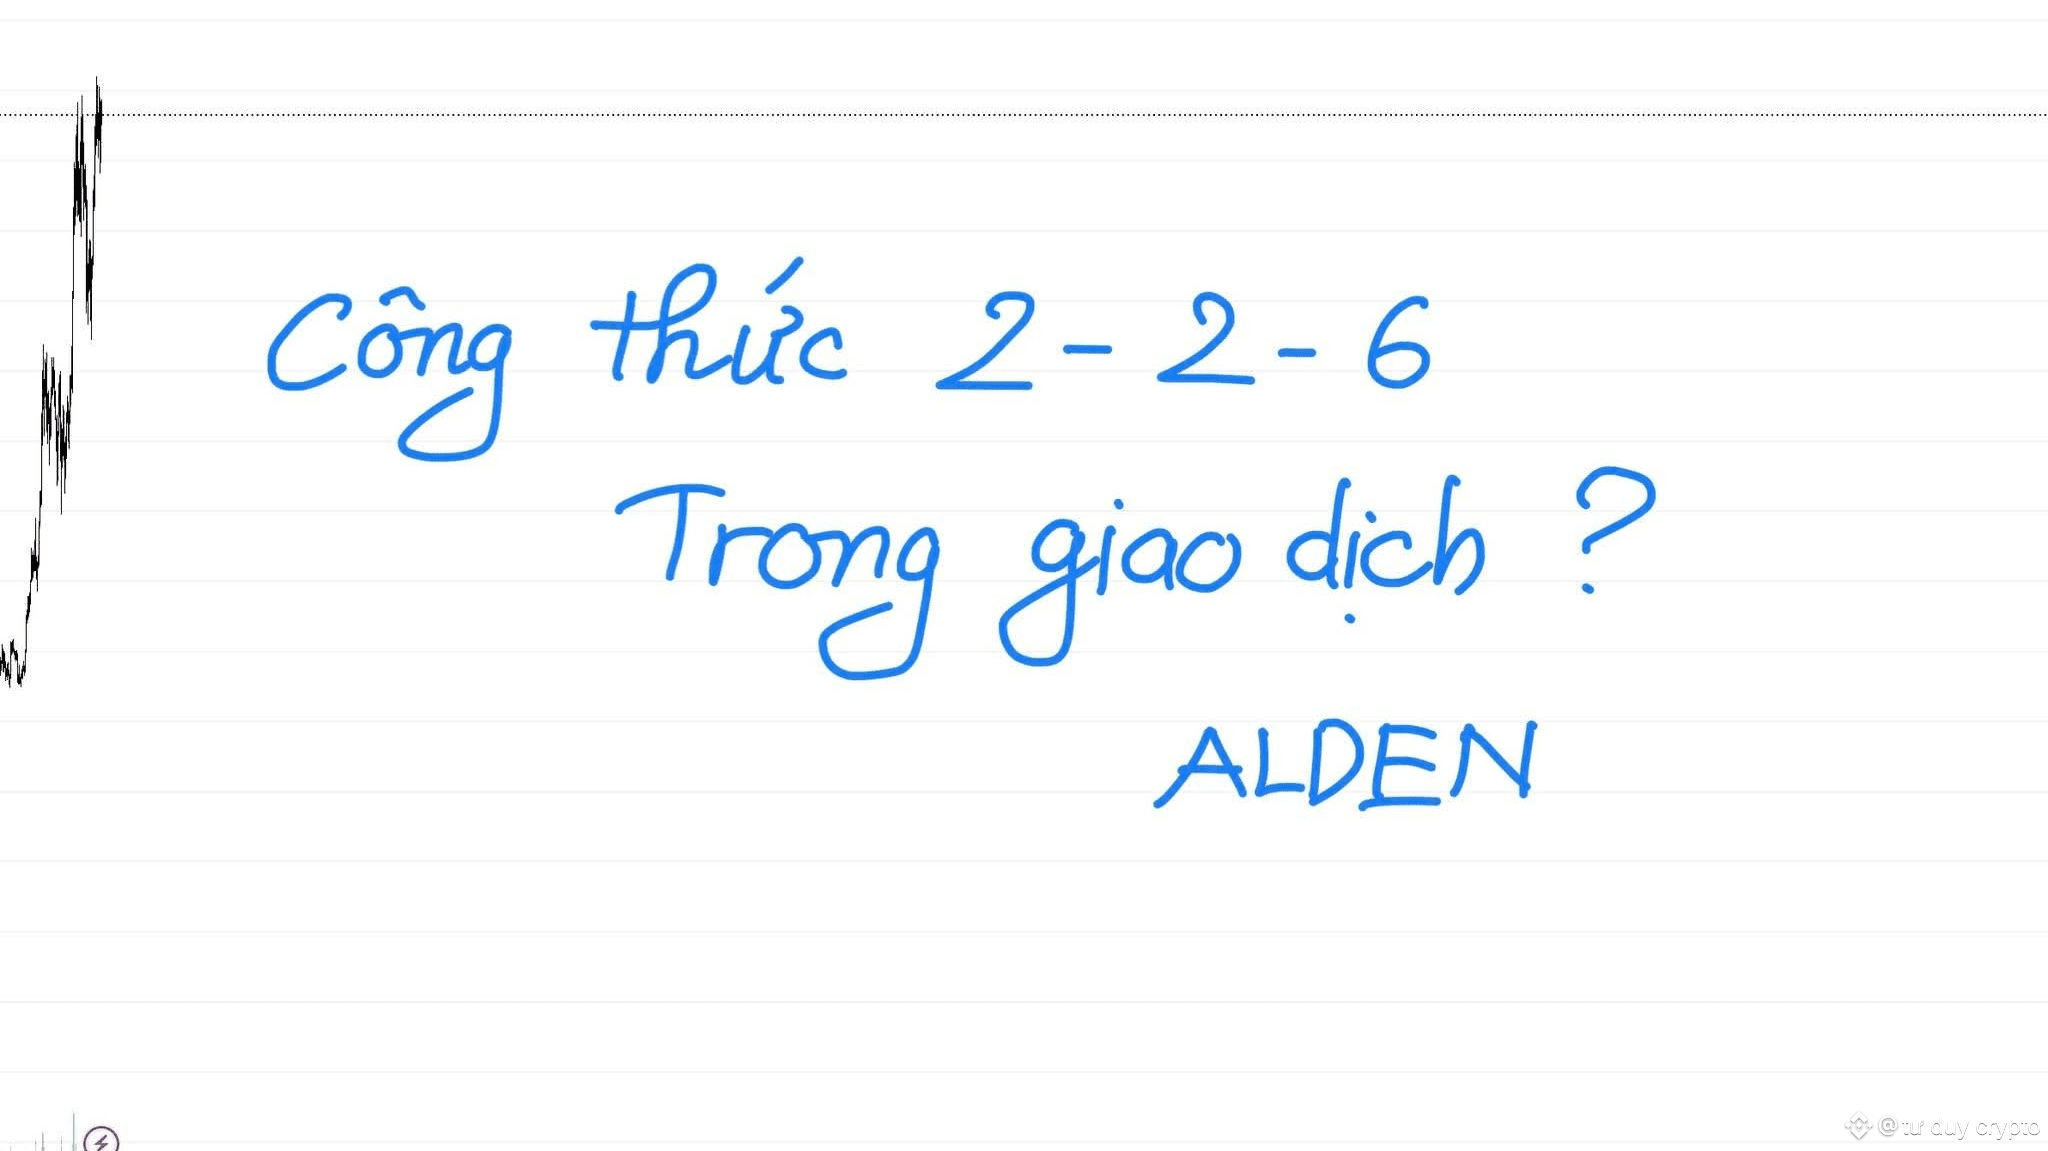 Công thức 2-2-6
Trong giao dịch ?
ALDEN
@tư duy crypto